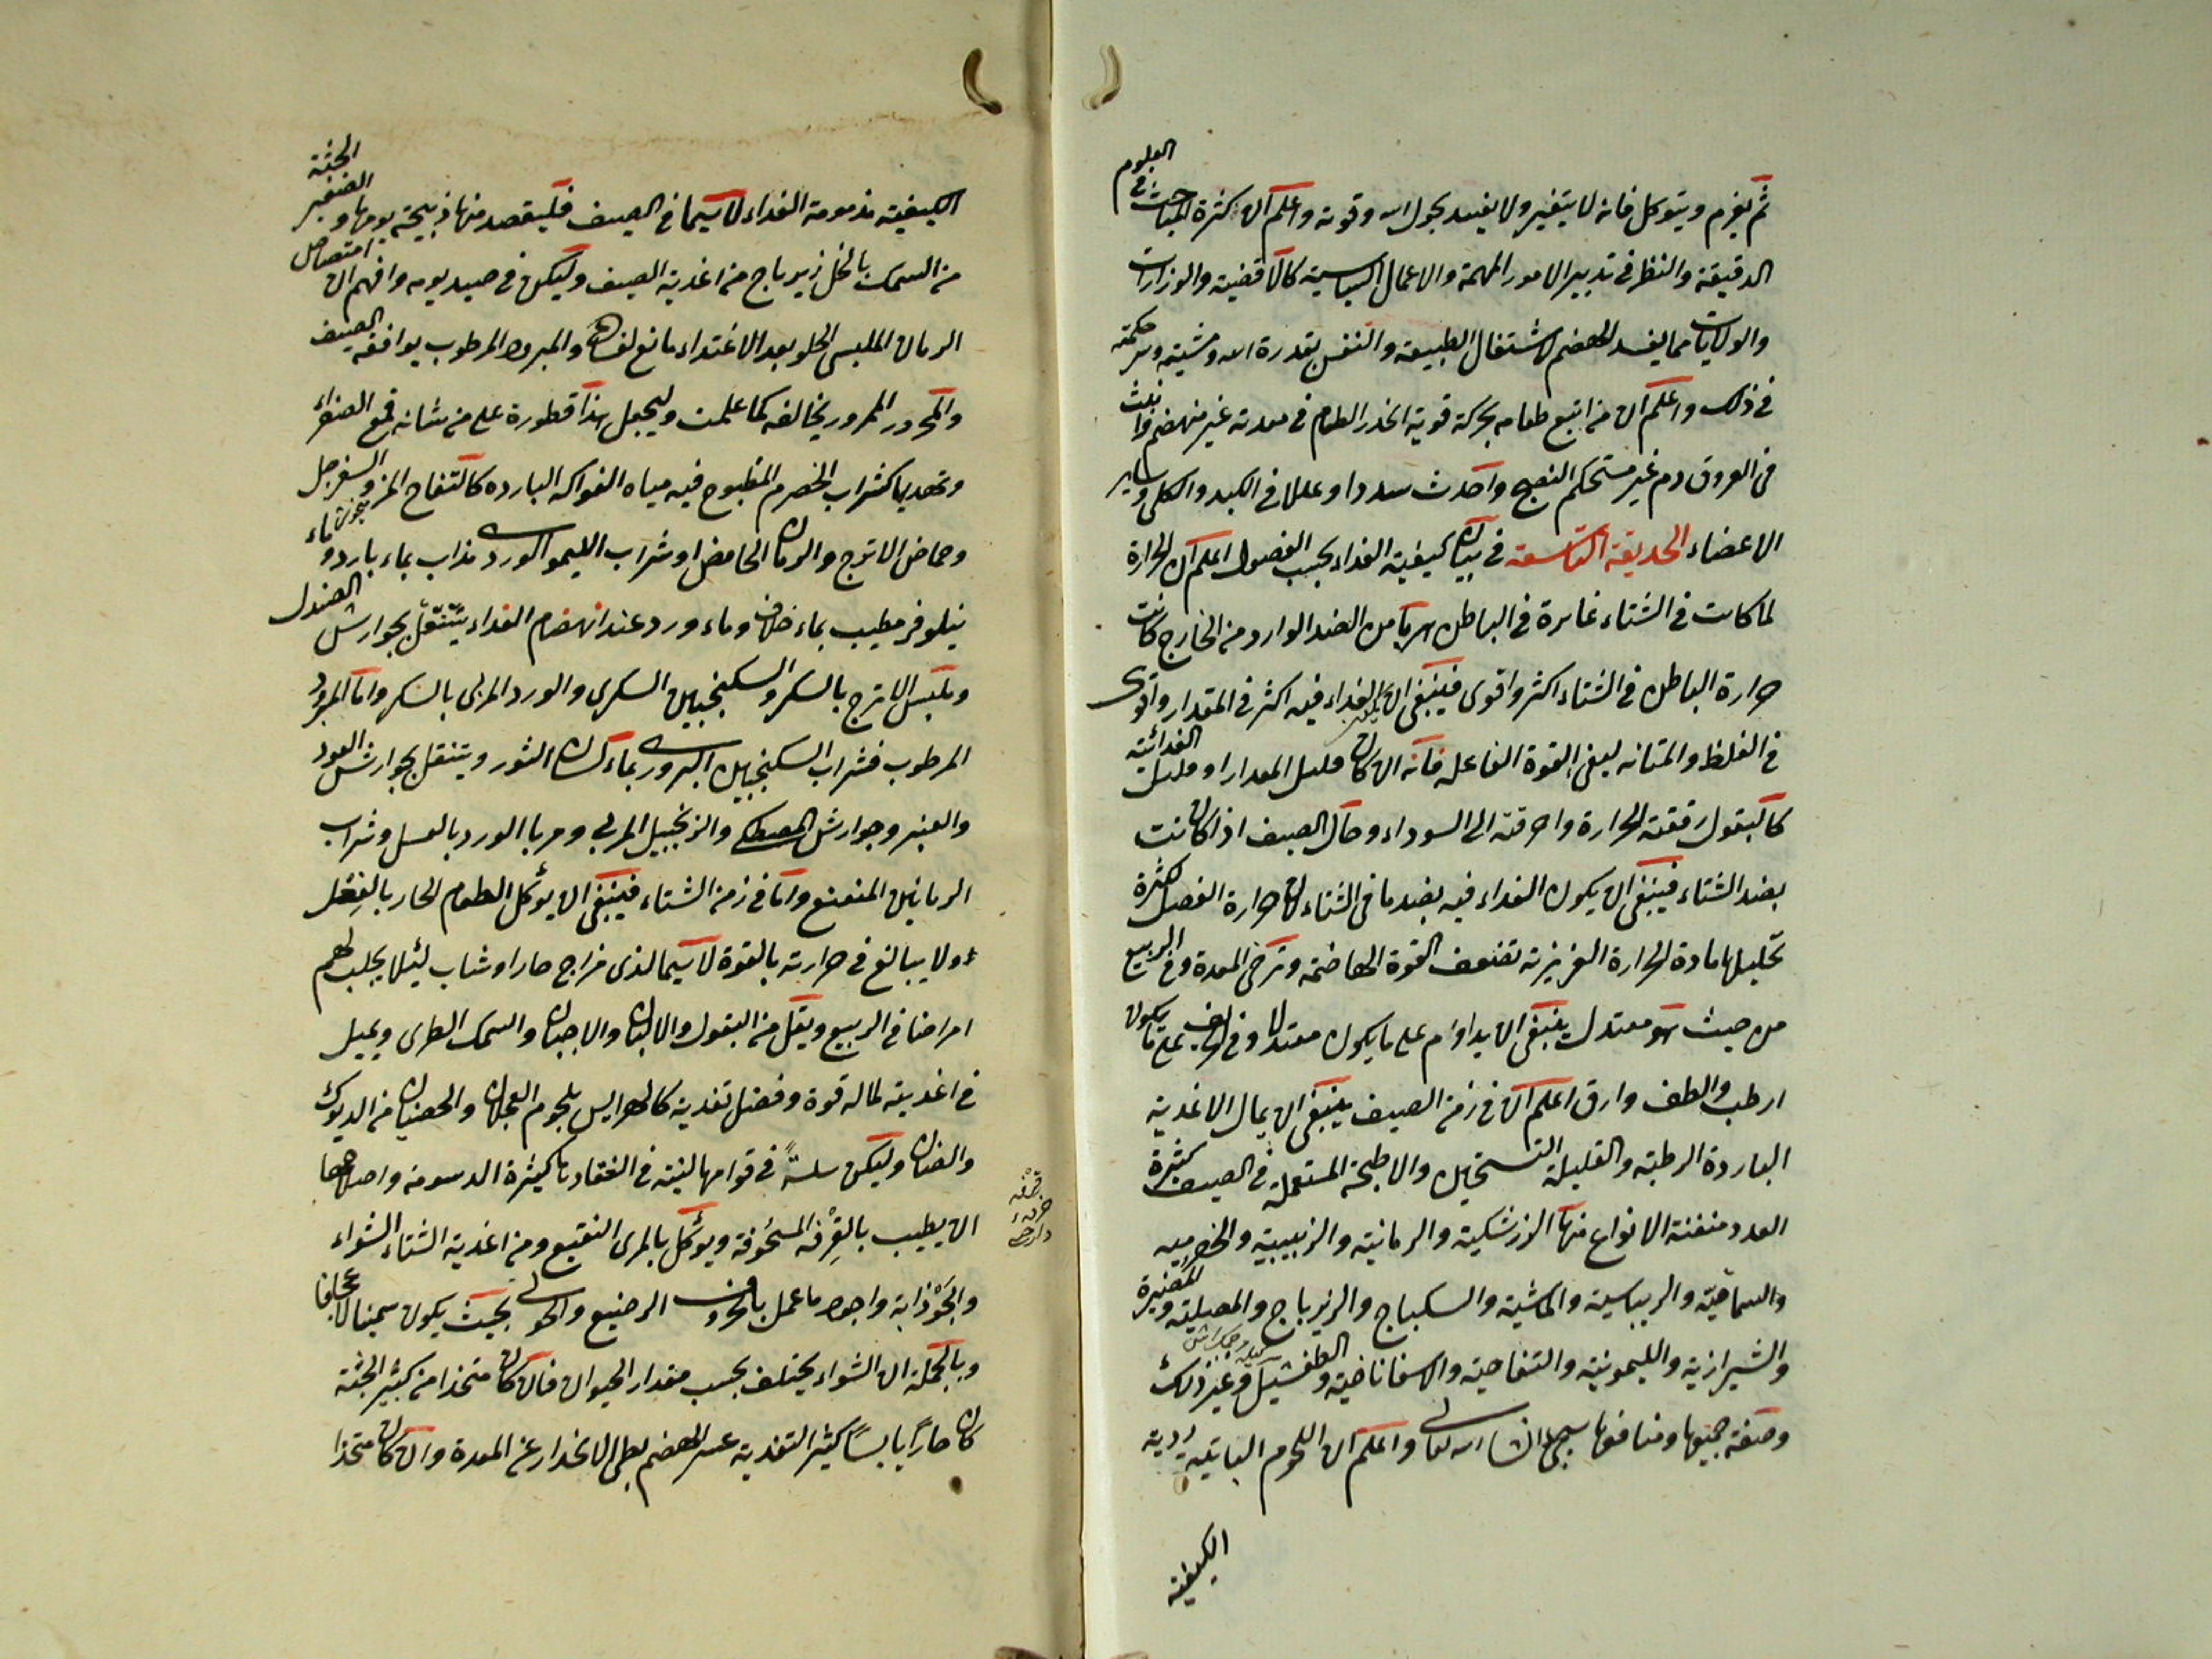 ثم يعزم ويتوكل فانه لا يتغير ولا يفسد بحول الله وقوته واعلم ان كثرة المباحث في العلوم
الدقيقة والنظر في تدبير الامور المهمة والاعمال السياسية كالاقضية والوزارات
والولايات مما يفسد الهضم لاشتغال الطبيعة والنفس بقدرة الله ومشيته وسر حكمته
في ذلك واعلم ان من اتبع طعامه بحركة قوية انحدر الطعام في معدته غير منهضم وانبث
في العروق دم غير مستحكم النضج واحدث سددا وعللا في الكبد والكلى وساير
الاعضاء الحديقة التاسعة في بيان كيفية الغداء بحسب الفصول اعلم ان الحرارة
لما كانت في الشتاء غائرة في الباطن هربا من الضد الوارد من الخارج كانت
حرارة الباطن في الشتاء اكثر واقوى فينبغى ان يكون الغداء فيه اكثر في المقدار واقوى
في الغلظ والمتانه ليفى القوة الفاعلة فانه ان كان قليل المقدار او قليل الغدائية
كالبقول رققته الحرارة واحرقته الى السوداء وحال الصيف اذا كانت
بضد الشتاء فينبغى ان يكون الغداء فيه بضد ما في الشتاء لان حرارة الفصل لكثرة
تحليلها مادة الحرارة الغريزية تضعف القوة الهاضمة وترخى المعدة وفي الربيع
من حيث هو معتدل ينبغى ان يداوم على ما يكون معتدلا وفي الخريف على ما يكون
ارطب والطف وارق اعلم ان في زمن الصيف ينبغى ان يمال الاغدية
الباردة الرطبة والقليلة التسخين والاطبخة المستعملة في الصيف كثيرة
العدد متفننة الانواع منها الزرشكية والرمانية والزبيبية والحصرمية
والسماقية والريباسية والماشية والسكباج والزيرباج والمصلية والمضيرة
والشيرازية والليمونية والتفاحية والاسفاناخية والطفشيل وغير ذلك
وصنعة جميعها ومنافعها سيجئ ان شا الله تعالى واعلم ان اللحوم الباتية ردية
الكيفية
الكيفية مذمومة الغداء لا سيما في الصيف فليقصد منها ذبيحة يومها والصغير الجثة
من السمك بالخل زيرباج من اغدية الصيف وليكن في صيد يومه وافهم ان امتصاص
الرمان المليسى الحلو بعد الاغتداء مانع لفساده والمبرود المرطوب يوافقه الصيف
والمحرور الممرور يخالفه كما علمت وليجعل هذا قطورة على من شانه قمع الصفراء
وتهديها كشراب الحصرم المطبوخ فيه مياه الفواكه الباردة كالتفاح المز والسفرجل
وحماض الاترج والرمان الحامض او شراب الليمو الوردى مذاب بماء بارد وماء
نيلوفر مطيب بماء خلاف وماء ورد عند انهضام الغداء يتنقل بجوارش الصندل
وملبس الاترج بالسكر والسكنجبين السكرى والورد المربى بالسكر واما المبرود
المرطوب فشراب السكنجبين البزورى بماء لسان الثور ويتنقل بجوارش العود
والعنبر وجوارش المصطكى والزنجبيل المربى ومربا الورد بالعسل وشراب
الرمانين المنعنع واما في زمن الشتاء فينبغى ان يوكل الطعام الحار بالفعل
ولا يبالغ في حرارته بالقوة لا سيما لذى مزاج حار او شاب ليلا يجلب لهم
امراضا في الربيع ويقل من البقول والالبان والاجبان والسمك الطرى ويميل
في اغديته لما له قوة وفضل تغدية كالهرايس بلحوم العجلان والخصيان من الديوك
والضان وليكن سلسة في قوامها لينة في انعقادها كثيرة الدسومة واصلاحها
ان يطيب بالقرفة المسحوقة ويوكل بالمرى النقيع ومن اغدية الشتاء الشواء
والجوذابة واجوده ما عمل بالخروف الرضيع والحولى بحيث يكون سمينا لا عجافا
وبالجملة ان الشواء يختلف بحسب مقدار الحيوان فان كان متخذا من كبير الجثة
كان حارا يابسا كثير التغدية عسر الهضم بطى الانحدار عن المعدة وان كان متخذا